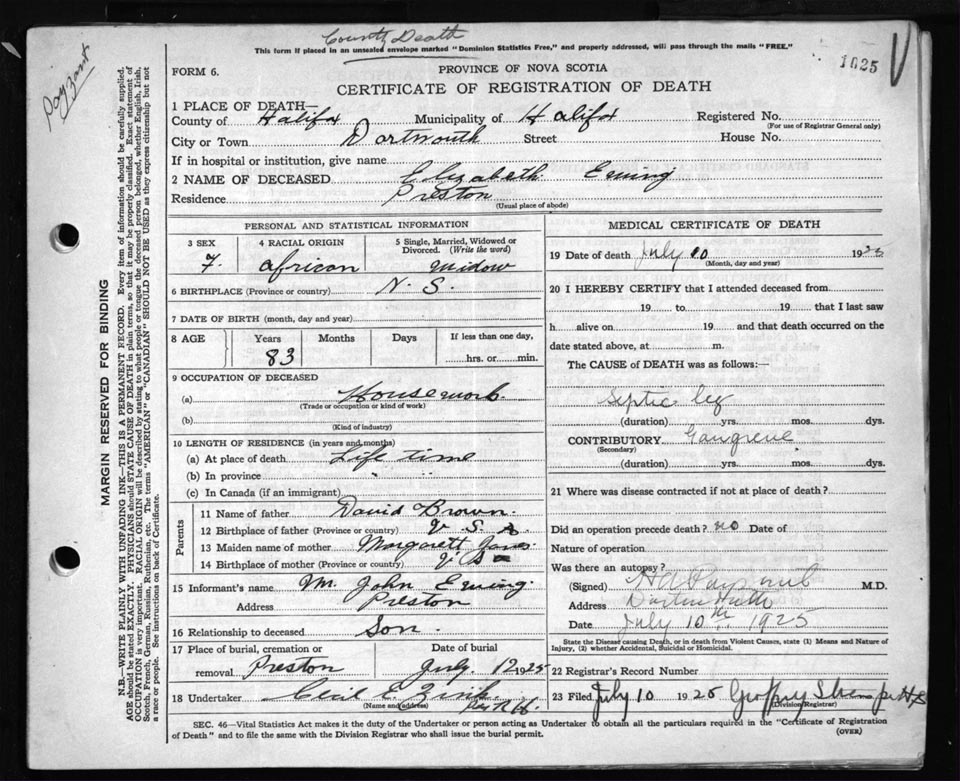 County Death
This form if placed in an unsealed envelope marked "Dominion Statistics Free," and properly addressed, will pass through the mails "FREE."
1025
Payzant
FORM 6.
PROVINCE OF NOVA SCOTIA
CERTIFICATE OF REGISTRATION OF DEATH
1 PLACE OF DEATH—
County of Halifax Municipality of Halifax Registered No.
(For use of Registrar General only)
City or Town Dartmouth Street House No.
If in hospital or institution, give name
2 NAME OF DECEASED Elizabeth Ewing
Residence Preston
(Usual place of abode)
PERSONAL AND STATISTICAL INFORMATION
3 SEX 4 RACIAL ORIGIN 5 Single, Married, Widowed or Divorced. (Write the word)
F. African Widow
6 BIRTHPLACE (Province or country) N. S.
7 DATE OF BIRTH (month, day and year)
8 AGE Years Months Days If less than one day,
83 hrs. or min.
9 OCCUPATION OF DECEASED
(a) Housework
(Trade or occupation or kind of work)
(b)
(Kind of industry)
10 LENGTH OF RESIDENCE (in years and months)
(a) At place of death Life time
(b) In province " "
(c) In Canada (if an immigrant)
Parents
11 Name of father David Brown.
12 Birthplace of father (Province or country)
13 Maiden name of mother Margarett Jones
14 Birthplace of mother (Province or country)
15 Informant's name M. John Ewing.
Address Preston
16 Relationship to deceased Son.
17 Place of burial, cremation or removal Preston Date of burial July. 12 1925
18 Undertaker Cecil E. Zink
(Name and address)
MEDICAL CERTIFICATE OF DEATH
19 Date of death July 10 192
(Month, day and year)
20 I HEREBY CERTIFY that I attended deceased from
19 to 19 that I last saw
h alive on 19 and that death occurred on the
date stated above, at m.
The CAUSE of DEATH was as follows:
Septic leg
(duration) yrs. mos. dys.
CONTRIBUTORY Gangrene
(Secondary)
(duration) yrs. mos. dys.
21 Where was disease contracted if not at place of death?
Did an operation precede death? no Date of
Nature of operation
Was there an autopsy?
(Signed) M.D.
Address Dartmouth
Date July 10th 1925
State the Disease causing Death, or in death from Violent Causes, state (1) Means and Nature of Injury, (2) whether Accidental, Suicidal or Homicidal.
22 Registrar's Record Number
23 Filed July 10 1925
(Division Registrar)
SEC. 46—Vital Statistics Act makes it the duty of the Undertaker or person acting as Undertaker to obtain all the particulars required in the "Certificate of Registration
of Death" and to file the same with the Division Registrar who shall issue the burial permit.
(OVER)
MARGIN RESERVED FOR BINDING
N.B.—WRITE PLAINLY WITH UNFADING INK—THIS IS A PERMANENT RECORD. Every item of information should be carefully supplied.
AGE should be stated EXACTLY. PHYSICIANS should STATE CAUSE OF DEATH in plain terms, so that it may be properly classified. Exact statement of
OCCUPATION is very important. RACIAL ORIGIN will be described by stating to what people or tongue the deceased person belonged, whether English, Irish,
Scotch, French, German, Russian, Ruthenian, etc. The terms "AMERICAN" or "CANADIAN" SHOULD NOT BE USED as they express citizenship but not
a race or people. See instructions on back of Certificate.